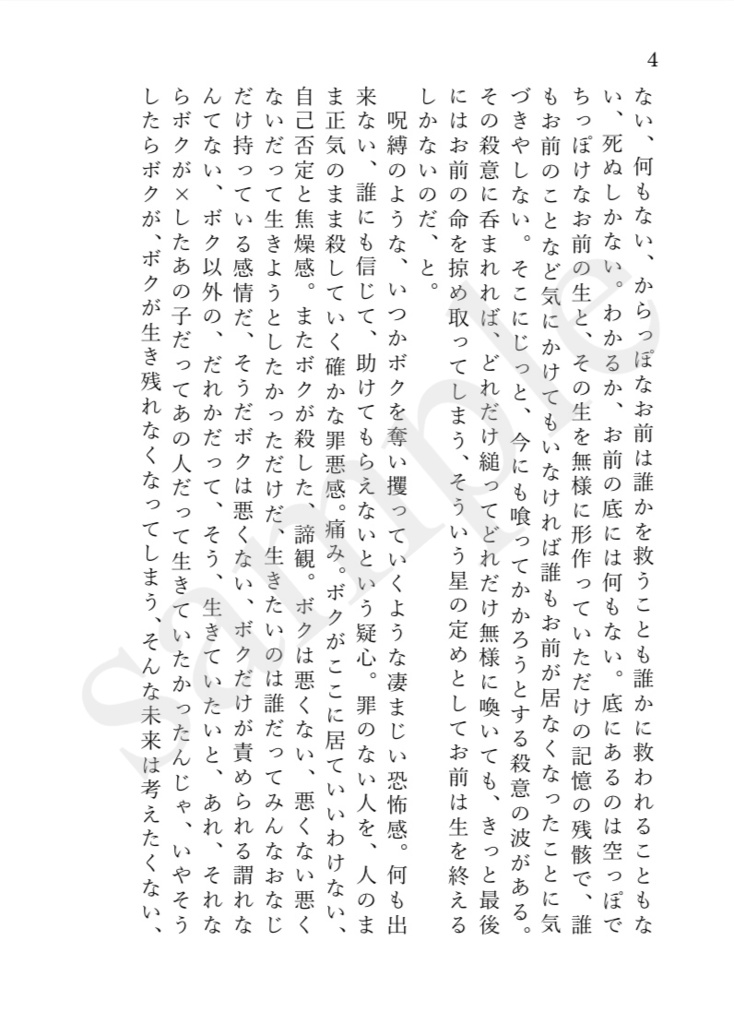 4
ない、何もない、からっぽなお前は誰かを救うことも誰かに救われることもな
い、死ぬしかない。わかるか、お前の底には何もない。底にあるのは空っぽで
ちっぽけなお前の生と、その生を無様に形作っていただけの記憶の残骸で、誰
もお前のことなど気にかけてもいなければ誰もお前が居なくなったことに気
づきやしない。そこにじっと、今にも喰ってかかろうとする殺意の波がある。
その殺意に呑まれれば、どれだけ縋ってどれだけ無様に喚いても、きっと最後
にはお前の命を掠め取ってしまう、そういう星の定めとしてお前は生を終える
しかないのだ、と。
呪縛のような、いつかボクを奪い攫っていくような凄まじい恐怖感。何も出
来ない、誰にも信じて、助けてもらえないという疑心。罪のない人を、人のま
ま正気のまま殺していく確かな罪悪感。痛み。ボクがここに居ていいわけない、
自己否定と焦燥感。またボクが殺した、諦観。ボクは悪くない、悪くない悪く
ないだって生きようとしたかっただけだ、生きたいのは誰だってみんなおなじ
だけ持っている感情だ、そうだボクは悪くない、ボクだけが責められる謂れな
んてない、ボク以外の、だれかだって、そう、生きていたいと、あれ、それな
らボクが×したあの子だってあの人だって生きていたかったんじゃ、いやそう
したらボクが、ボクが生き残れなくなってしまう、そんな未来は考えたくない、
sample